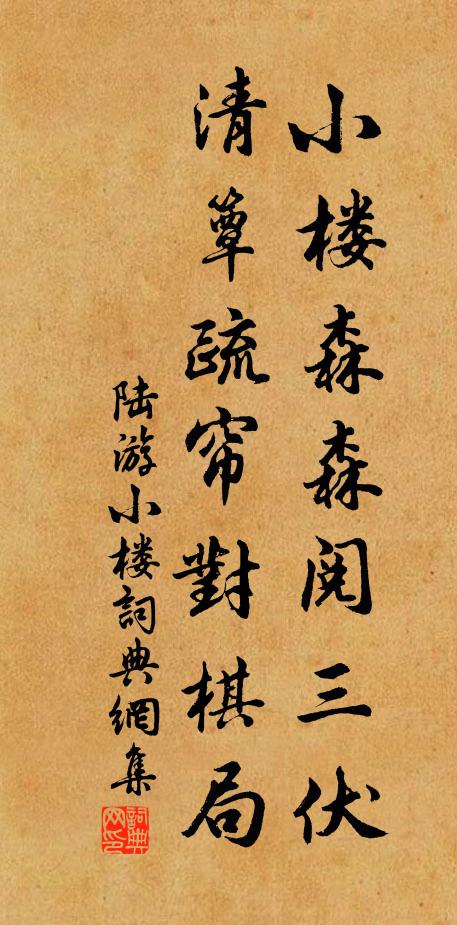 小楼森森閲三伏
清簟疏帘對棋局
陆游小楼詞典網集
詞典网印